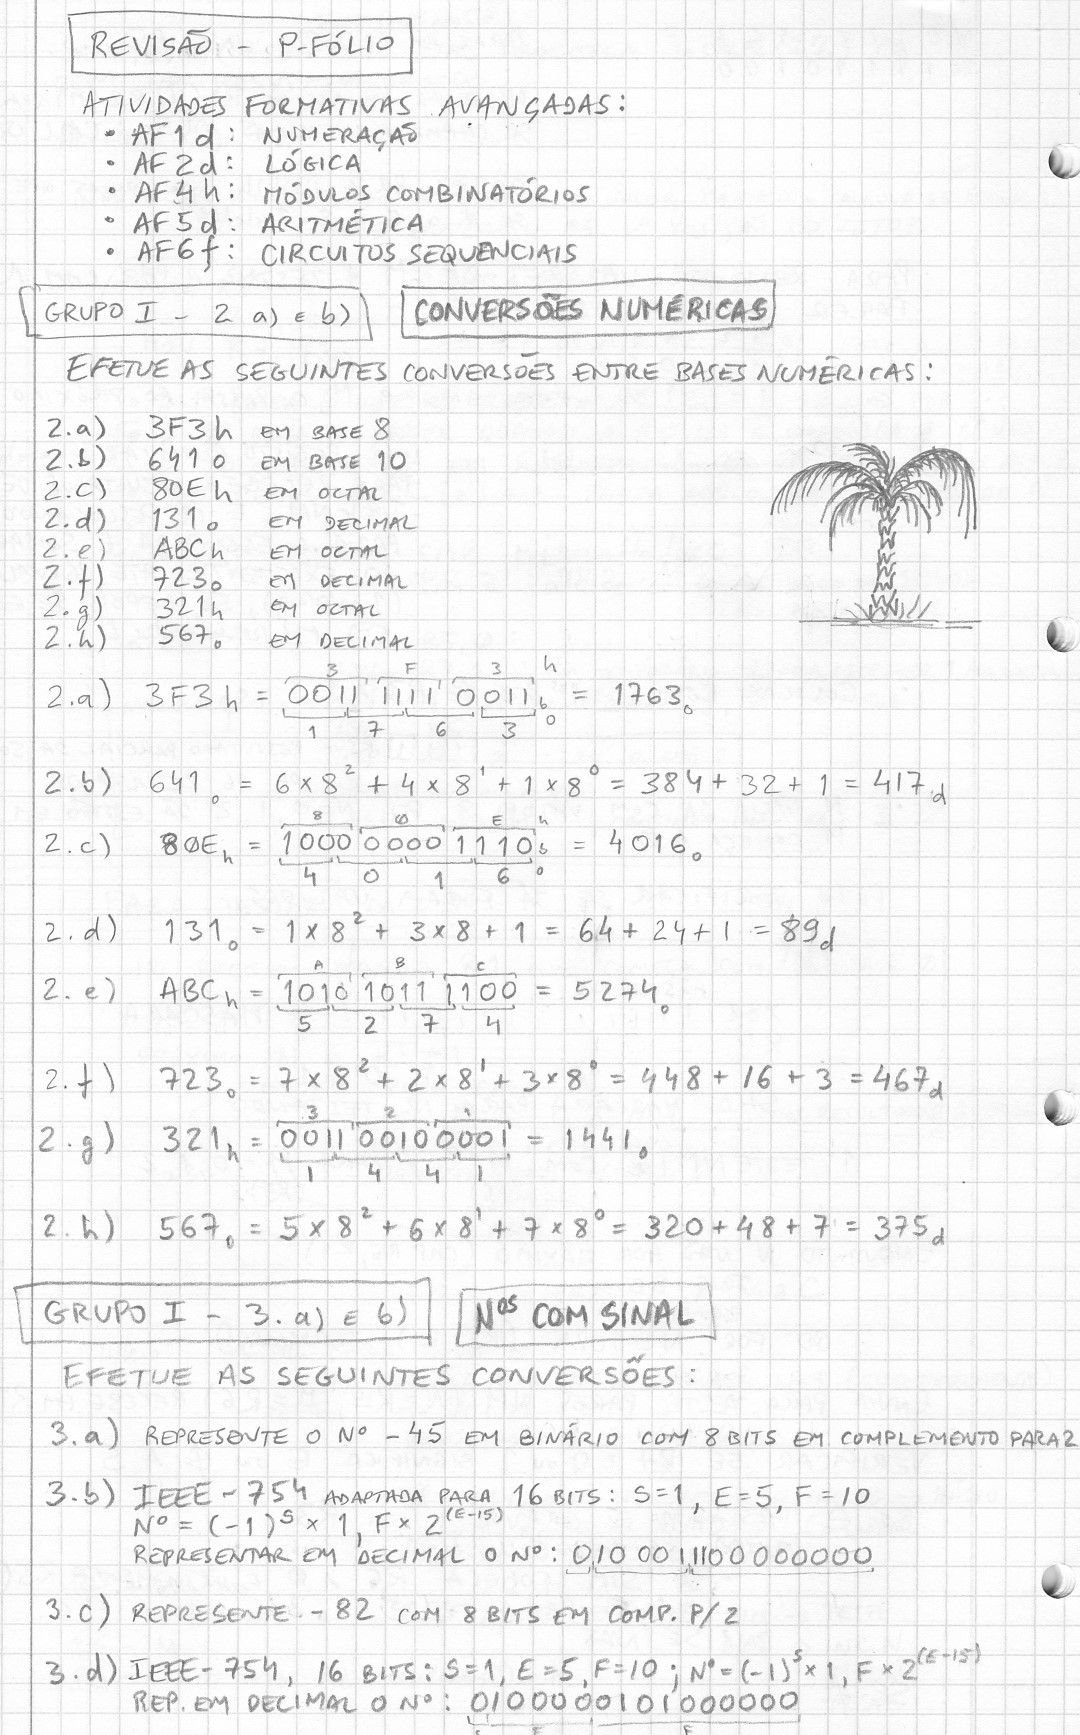 REVISÃO - P-FÓLIO
ATIVIDADES FORMATIVAS AVANÇADAS:
• AF1d: NUMERAÇÃO
• AF2d: LÓGICA
• AF4h: MÓDULOS COMBINATÓRIOS
• AF5d: ARITMÉTICA
• AF6f: CIRCUITOS SEQUENCIAIS
GRUPO I - 2 a) E b) CONVERSÕES NUMÉRICAS
EFETUE AS SEGUINTES CONVERSÕES ENTRE BASES NUMÉRICAS:
2.a) 3F3h EM BASE 8
2.b) 641o EM BASE 10
2.c) 80Eh EM OCTAL
2.d) 131o EM DECIMAL
2.e) ABCh EM OCTAL
2.f) 723o EM DECIMAL
2.g) 321h EM OCTAL
2.h) 567o EM DECIMAL
3 F 3 h
2.a) 3F3h = 0011 1111 0011b = 1763o
1 7 6 3 o
2.b) 641o = 6×8² + 4×8¹ + 1×8⁰ = 384 + 32 + 1 = 417d
8 0 E h
2.c) 80Eh = 1000 0000 1110b = 4016o
4 0 1 6 o
2.d) 131o = 1×8² + 3×8 + 1 = 64 + 24 + 1 = 89d
A B C
2.e) ABCh = 1010 1011 1100 = 5274o
5 2 7 4
2.f) 723o = 7×8² + 2×8¹ + 3×8⁰ = 448 + 16 + 3 = 467d
3 2 1
2.g) 321h = 0011 0010 0001 = 1441o
1 4 4 1
2.h) 567o = 5×8² + 6×8¹ + 7×8⁰ = 320 + 48 + 7 = 375d
GRUPO I - 3.a) E b) Nos COM SINAL
EFETUE AS SEGUINTES CONVERSÕES:
3.a) REPRESENTE O Nº -45 EM BINÁRIO COM 8 BITS EM COMPLEMENTO PARA 2
3.b) IEEE-754 ADAPTADA PARA 16 BITS: S=1, E=5, F=10
Nº = (-1)^S × 1,F × 2^(E-15)
REPRESENTAR EM DECIMAL O Nº: 0100011100000000
3.c) REPRESENTE -82 COM 8 BITS EM COMP. P/ 2
3.d) IEEE-754, 16 BITS: S=1, E=5, F=10; Nº = (-1)^S × 1,F × 2^(E-15)
REP. EM DECIMAL O Nº: 0100000101000000